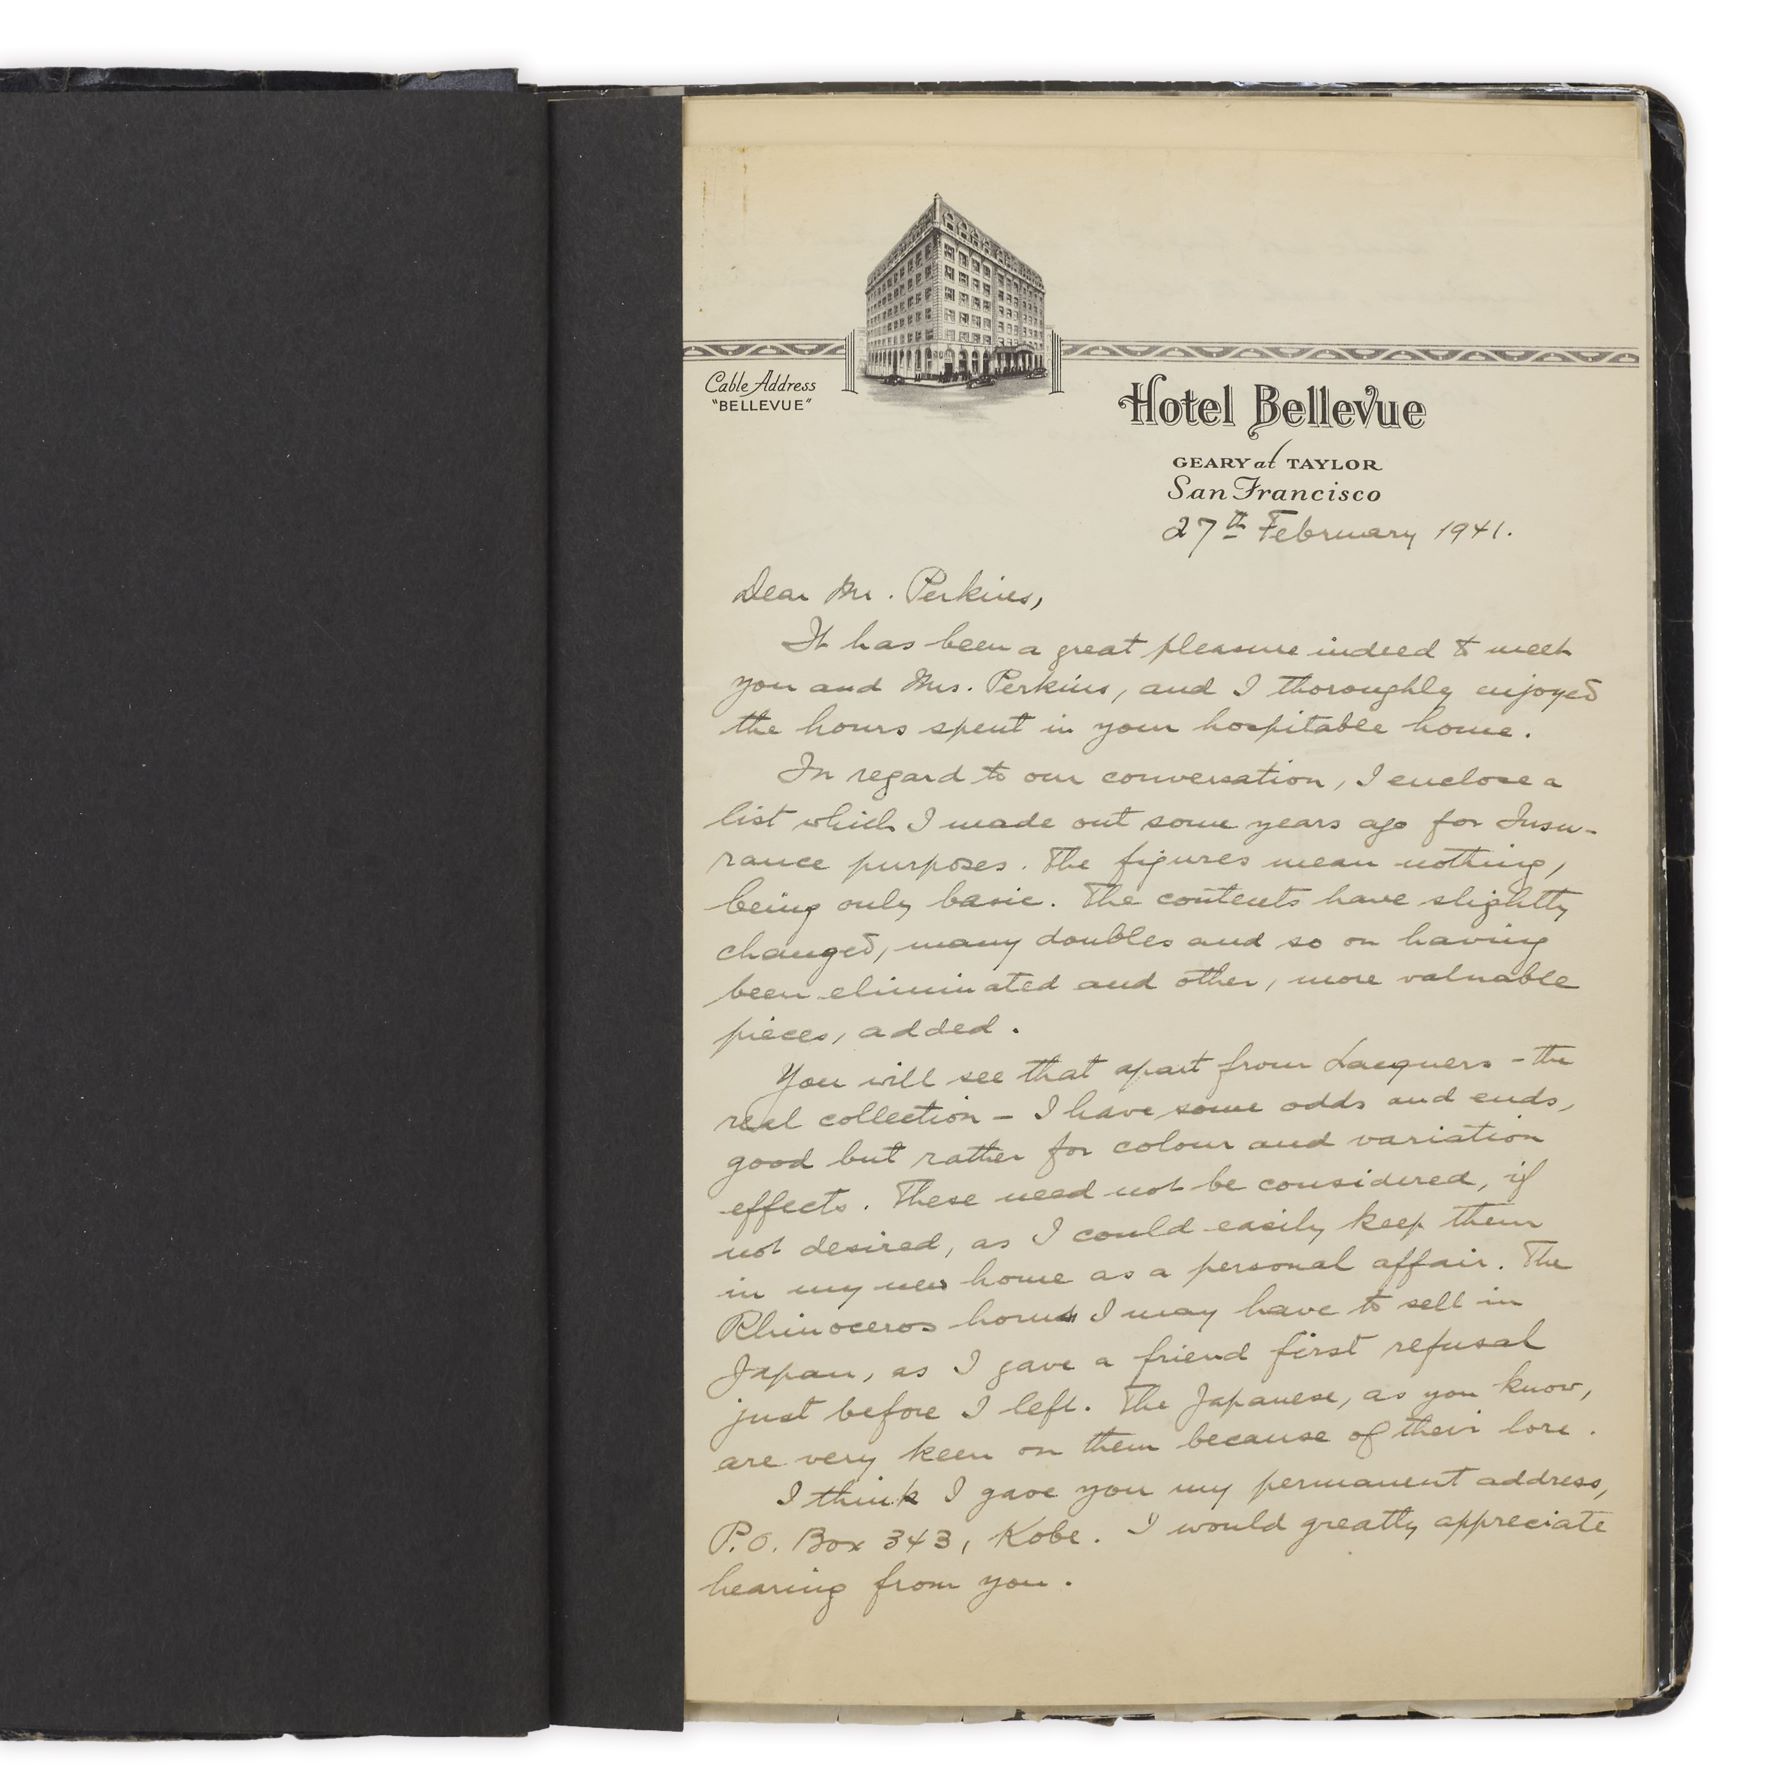 Cable Address
"BELLEVUE"
Hotel Bellevue
GEARY at TAYLOR
San Francisco
27th February 1941.
Dear Mr. Perkins,
It has been a great pleasure indeed to meet
you and Mrs. Perkins, and I thoroughly enjoyed
the hours spent in your hospitable home.
In regard to our conversation, I enclose a
list which I made out some years ago for Insu-
rance purposes. The figures mean nothing,
being only basic. The contents have slightly
changed, many doubles and so on having
been eliminated and other, more valuable
pieces, added.
You will see that apart from Lacquers - the
real collection - I have some odds and ends,
good but rather for colour and variation
effects. These need not be considered, if
not desired, as I could easily keep them
in my new home as a personal affair. The
Rhinoceros horns I may have to sell in
Japan, as I gave a friend first refusal
just before I left. The Japanese, as you know,
are very keen on them because of their lore.
I think I gave you my permanent address,
P.O. Box 343, Kobe. I would greatly appreciate
hearing from you.